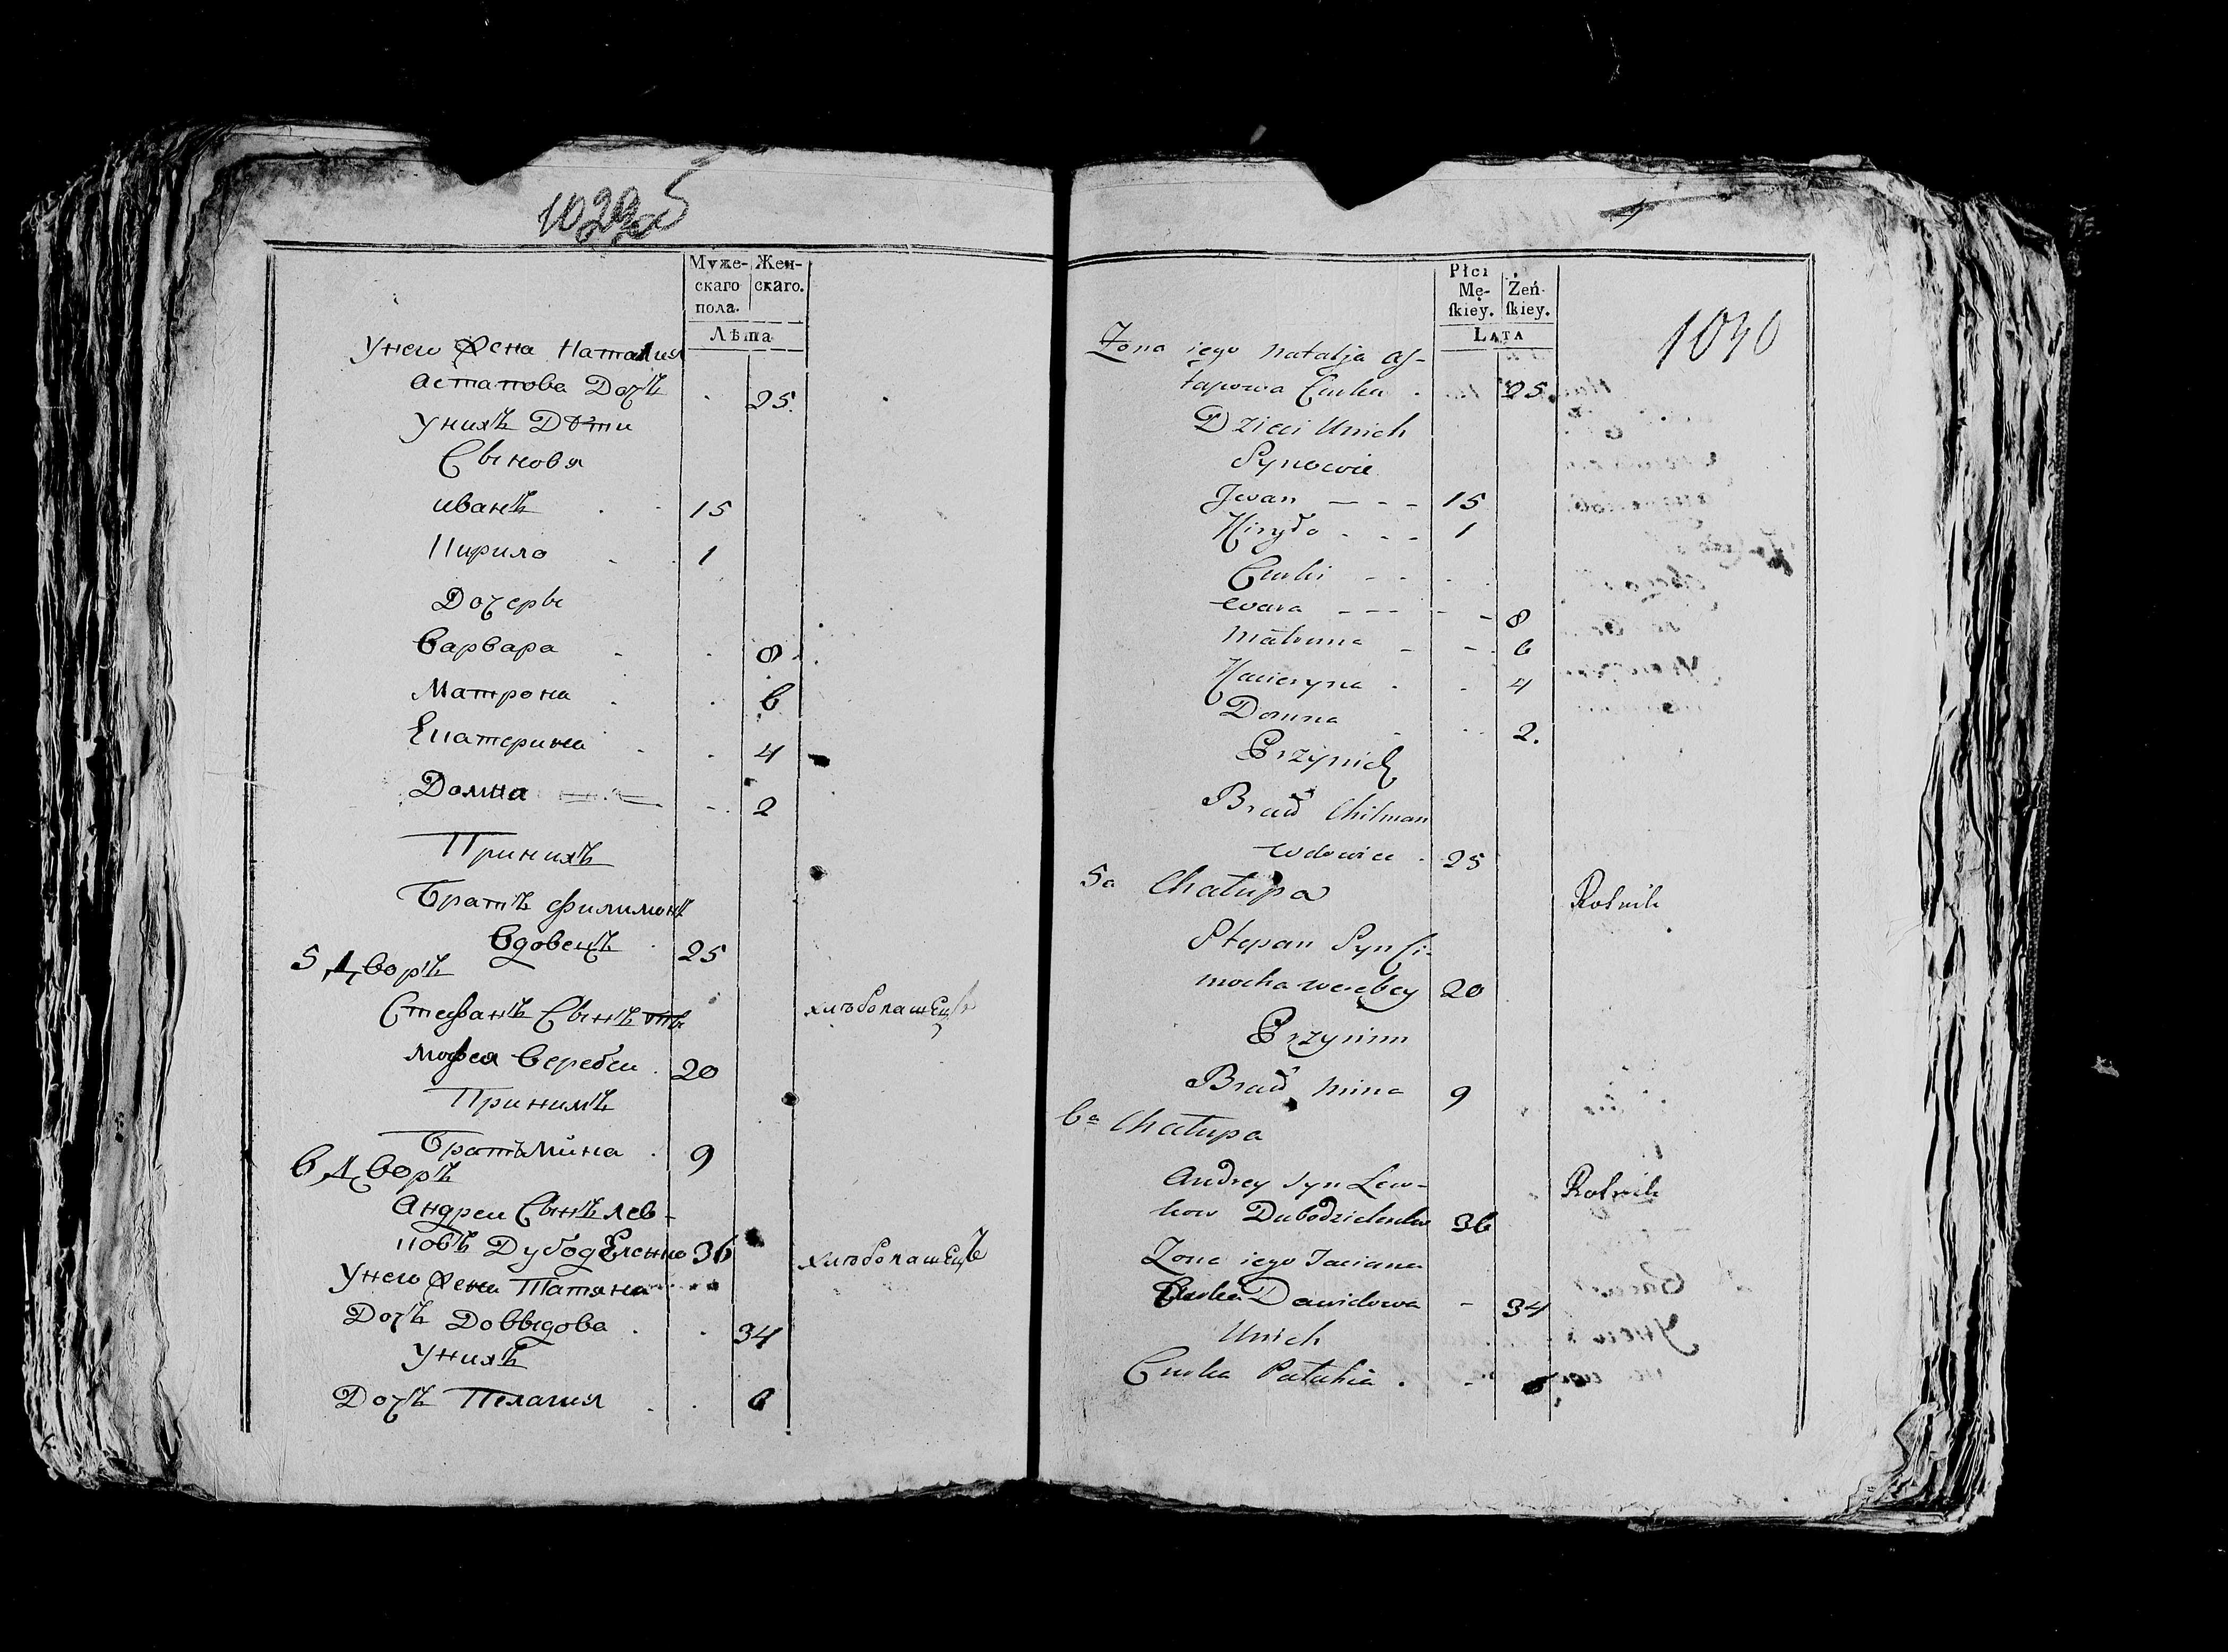 1029 об
Муже-
скаго
пола.
Жен-
скаго.
Лѣта
У него Жена Наталия
Астапова Дочь . 25.
У нихъ Дѣти
Сыновя
иванъ . . 15
Кирило . . 1
Дочеры
Варвара . . 8
Матрона . . 6
Екатерина . . 4
Домна . 2
При нихъ
Братъ Филимонъ
Вдовецъ . 25
5 Дворъ
Стефанъ Сынъ Ти
мофея Веребеи . 20 хлѣбопашецъ
При нимъ
Братъ Мина . 9
6 Дворъ
Андреи Сынъ Лев-
ковъ Дубоделенко 36 хлѣбопашецъ
У него Жена Татяна
Дочь Довыдова . . 34
У нихъ
Дочь Пелагия . . 6
Płci
Mę-
skiey.
Żeń-
skiey.
Lata
1030
Zona iego Natalja As-
tapowa Curka . 25
Dzieci Unich
Synowie
Jwan - - - 15
Kiryło . - - 1
Curki - - . .
Wara - - - - - 8
Matruna - - 6
Kacieryna . . 4
Domna . . . 2.
Przynich
Brad Chilman
Wdowiec . 25
5a Chałupa Rolnik
Stepan Syn Ci-
mocha Werebey 20
Przynim
Brad Mina 9
6a Chałupa
Andrey syn Lew- Rolnik
kow Dubodzielenko 36
Zona iego Taciana
Curka Dawidowa - 34
Unich
Curka Pałahia . -